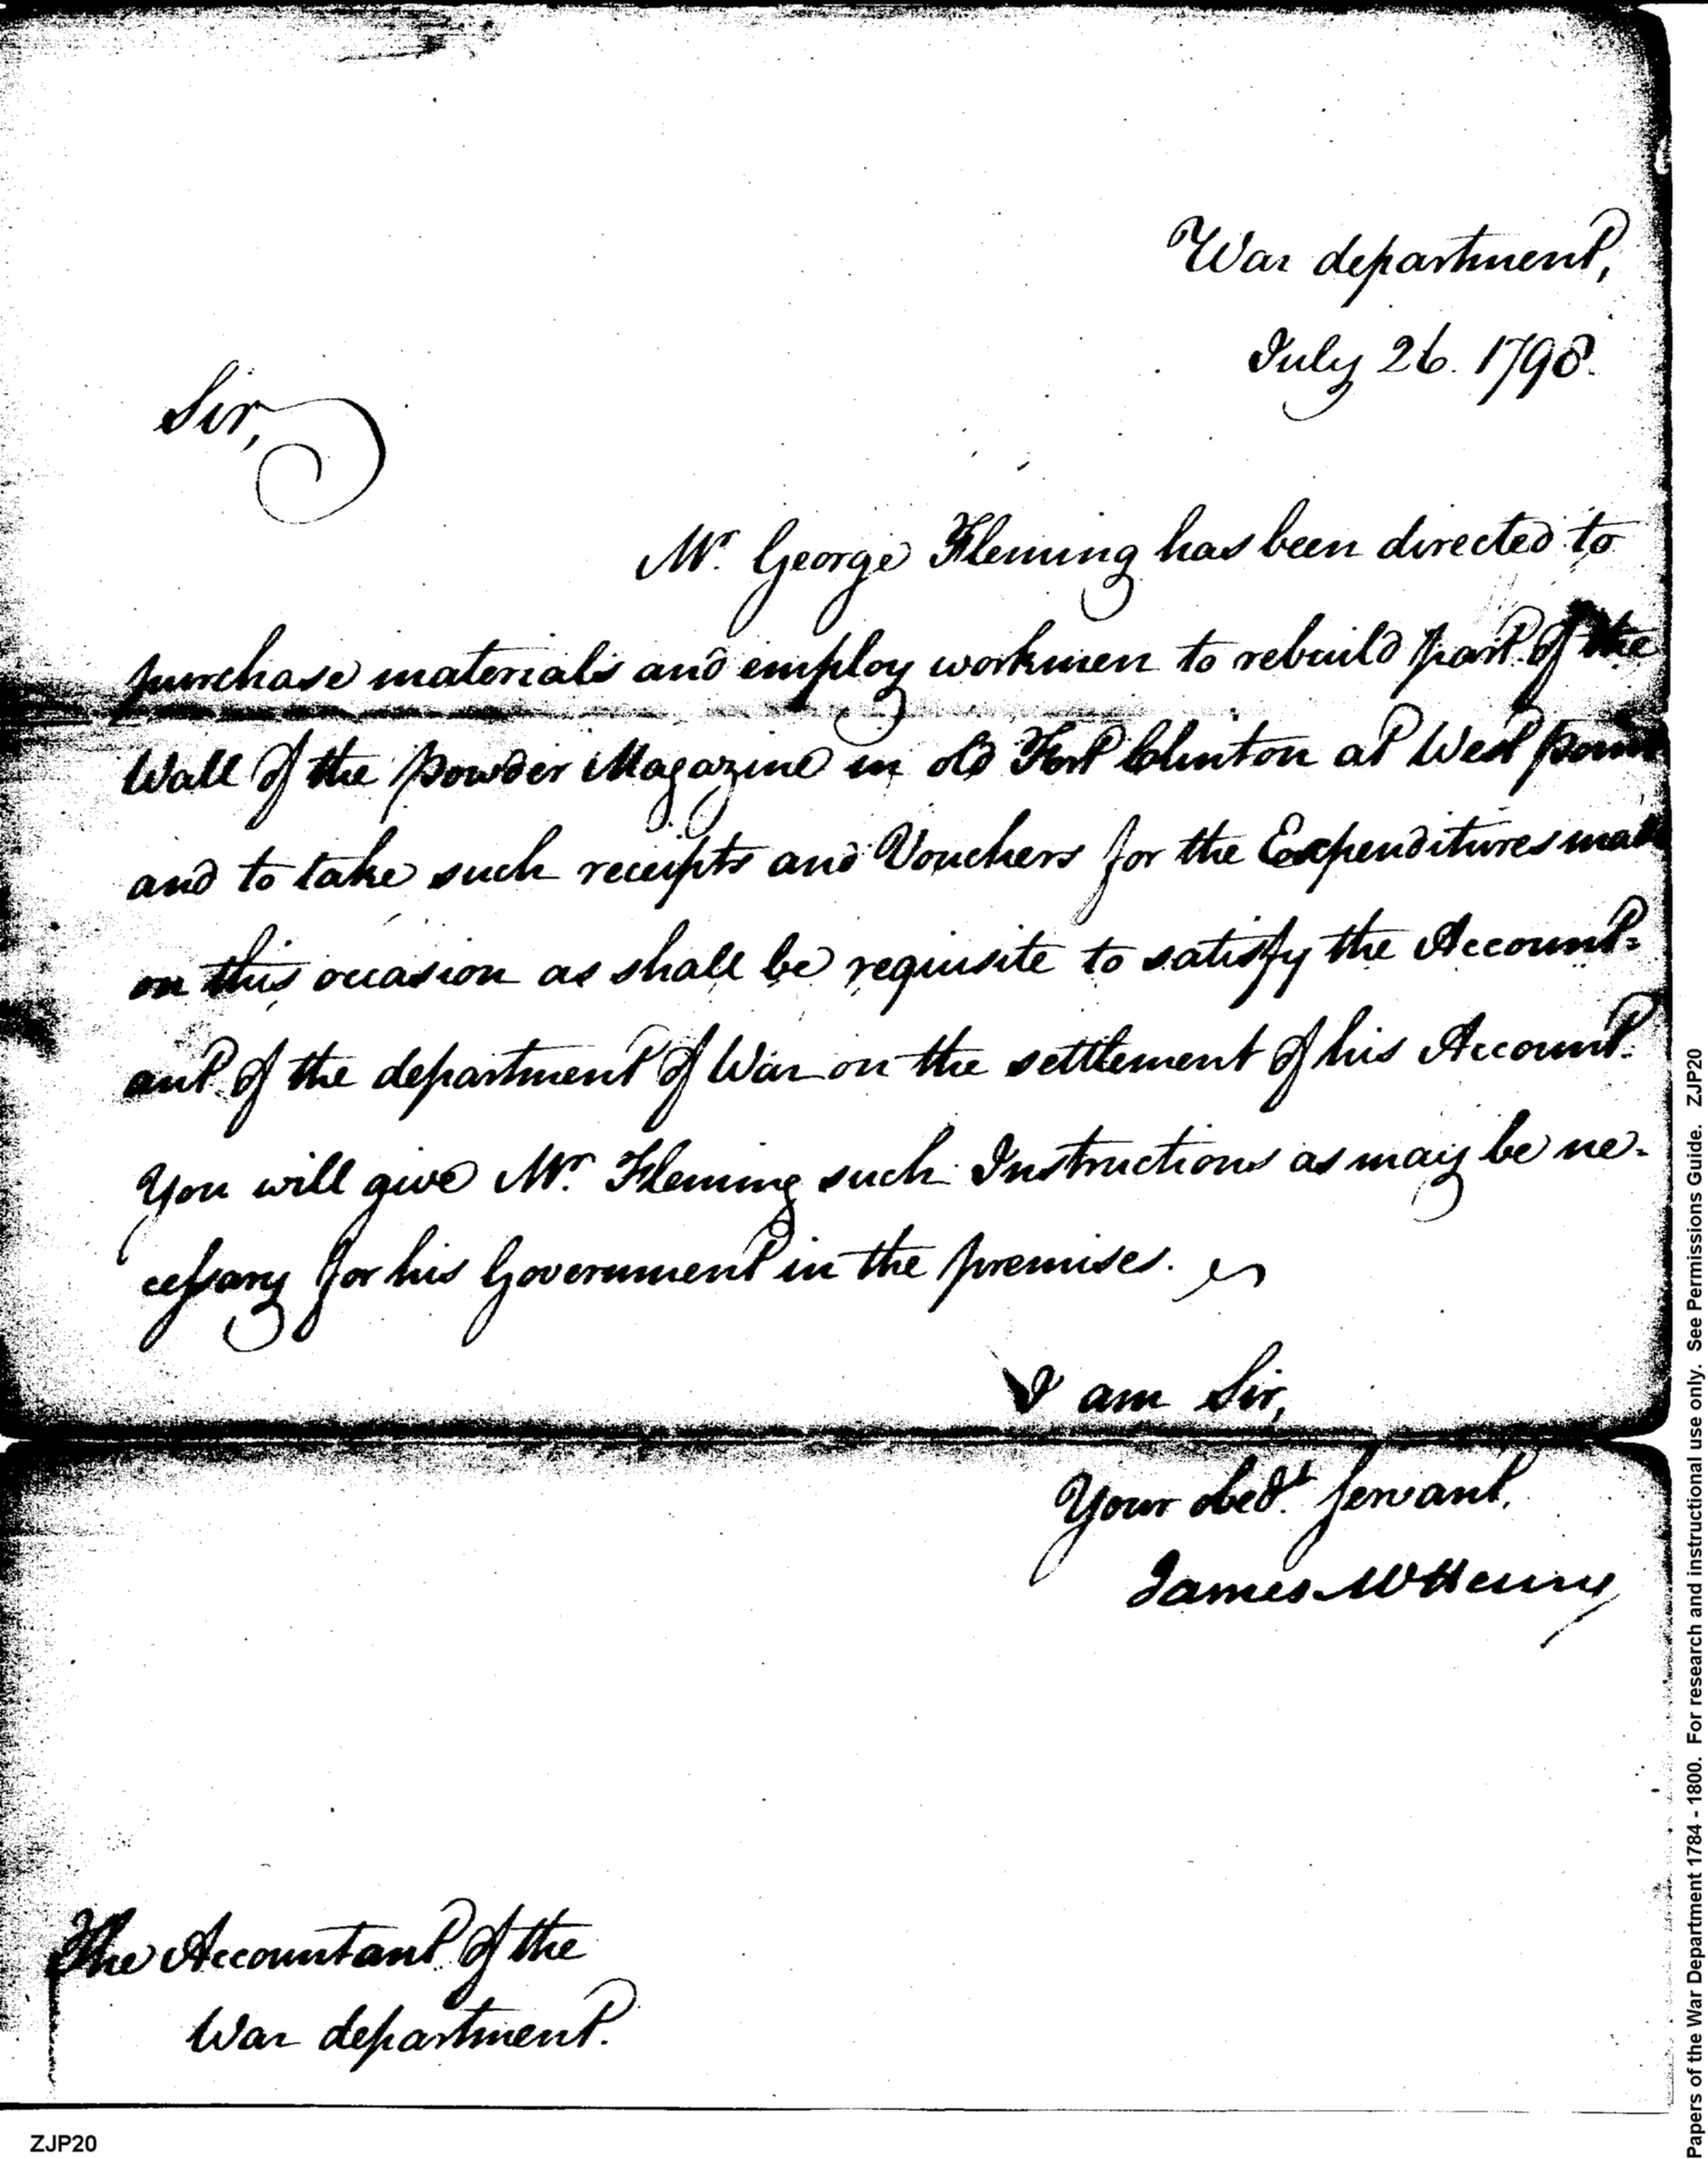 War department,
July 26. 1798.
Sir,
Mr. George Fleming has been directed to
purchase materials and employ workmen to rebuild part of the
Wall of the powder Magazine in old Fort Clinton at West point
and to take such receipts and Vouchers for the Expenditures made
on this occasion as shall be requisite to satisfy the Account=
ant of the department of War on the settlement of his Account.
You will give Mr. Fleming such Instructions as may be ne-
cessary for his Government in the premises.
I am Sir,
Your obedt. servant.
James McHenry
The Accountant of the
War department.
ZJP20
Papers of the War Department 1784 - 1800. For research and instructional use only. See Permissions Guide. ZJP20